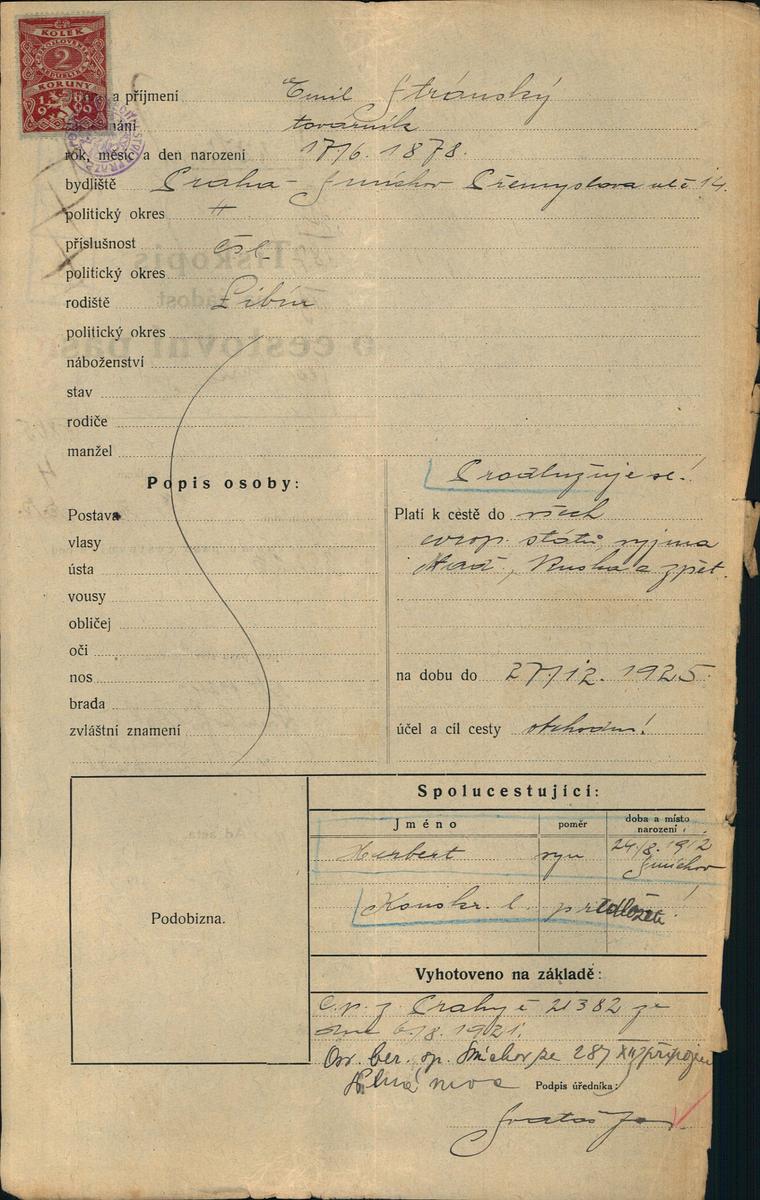 KOLEK
2
KORUNY
1919
a příjmení Emil Stránský
továrník
rok, měsíc a den narození 17/6. 1878.
bydliště Praha - Smíchov Přemyslova ul. č 14.
politický okres "
příslušnost čsl.
politický okres
rodiště Libín
politický okres
náboženství
stav
rodiče
manžel
Popis osoby:
Postava
vlasy
ústa
vousy
obličej
oči
nos
brada
zvláštní znamení
Prodlužuje se!
Platí k cestě do všech
evrop. států, vyjma
Maď., Ruska a zpět.
na dobu do 27/12. 1925.
účel a cíl cesty obchodní!
Podobizna.
Spolucestující:
Jméno poměr doba a místo narození
Herbert syn 24./8. 1912 Smíchov
Konskr. l. předložiti!
Vyhotoveno na základě:
C. p. z Prahy č 21382 ze
dne 6./8. 1921.
Osv. ber. sp. Smíchov ze 287 XII připojen
Plná moc
Podpis úředníka: